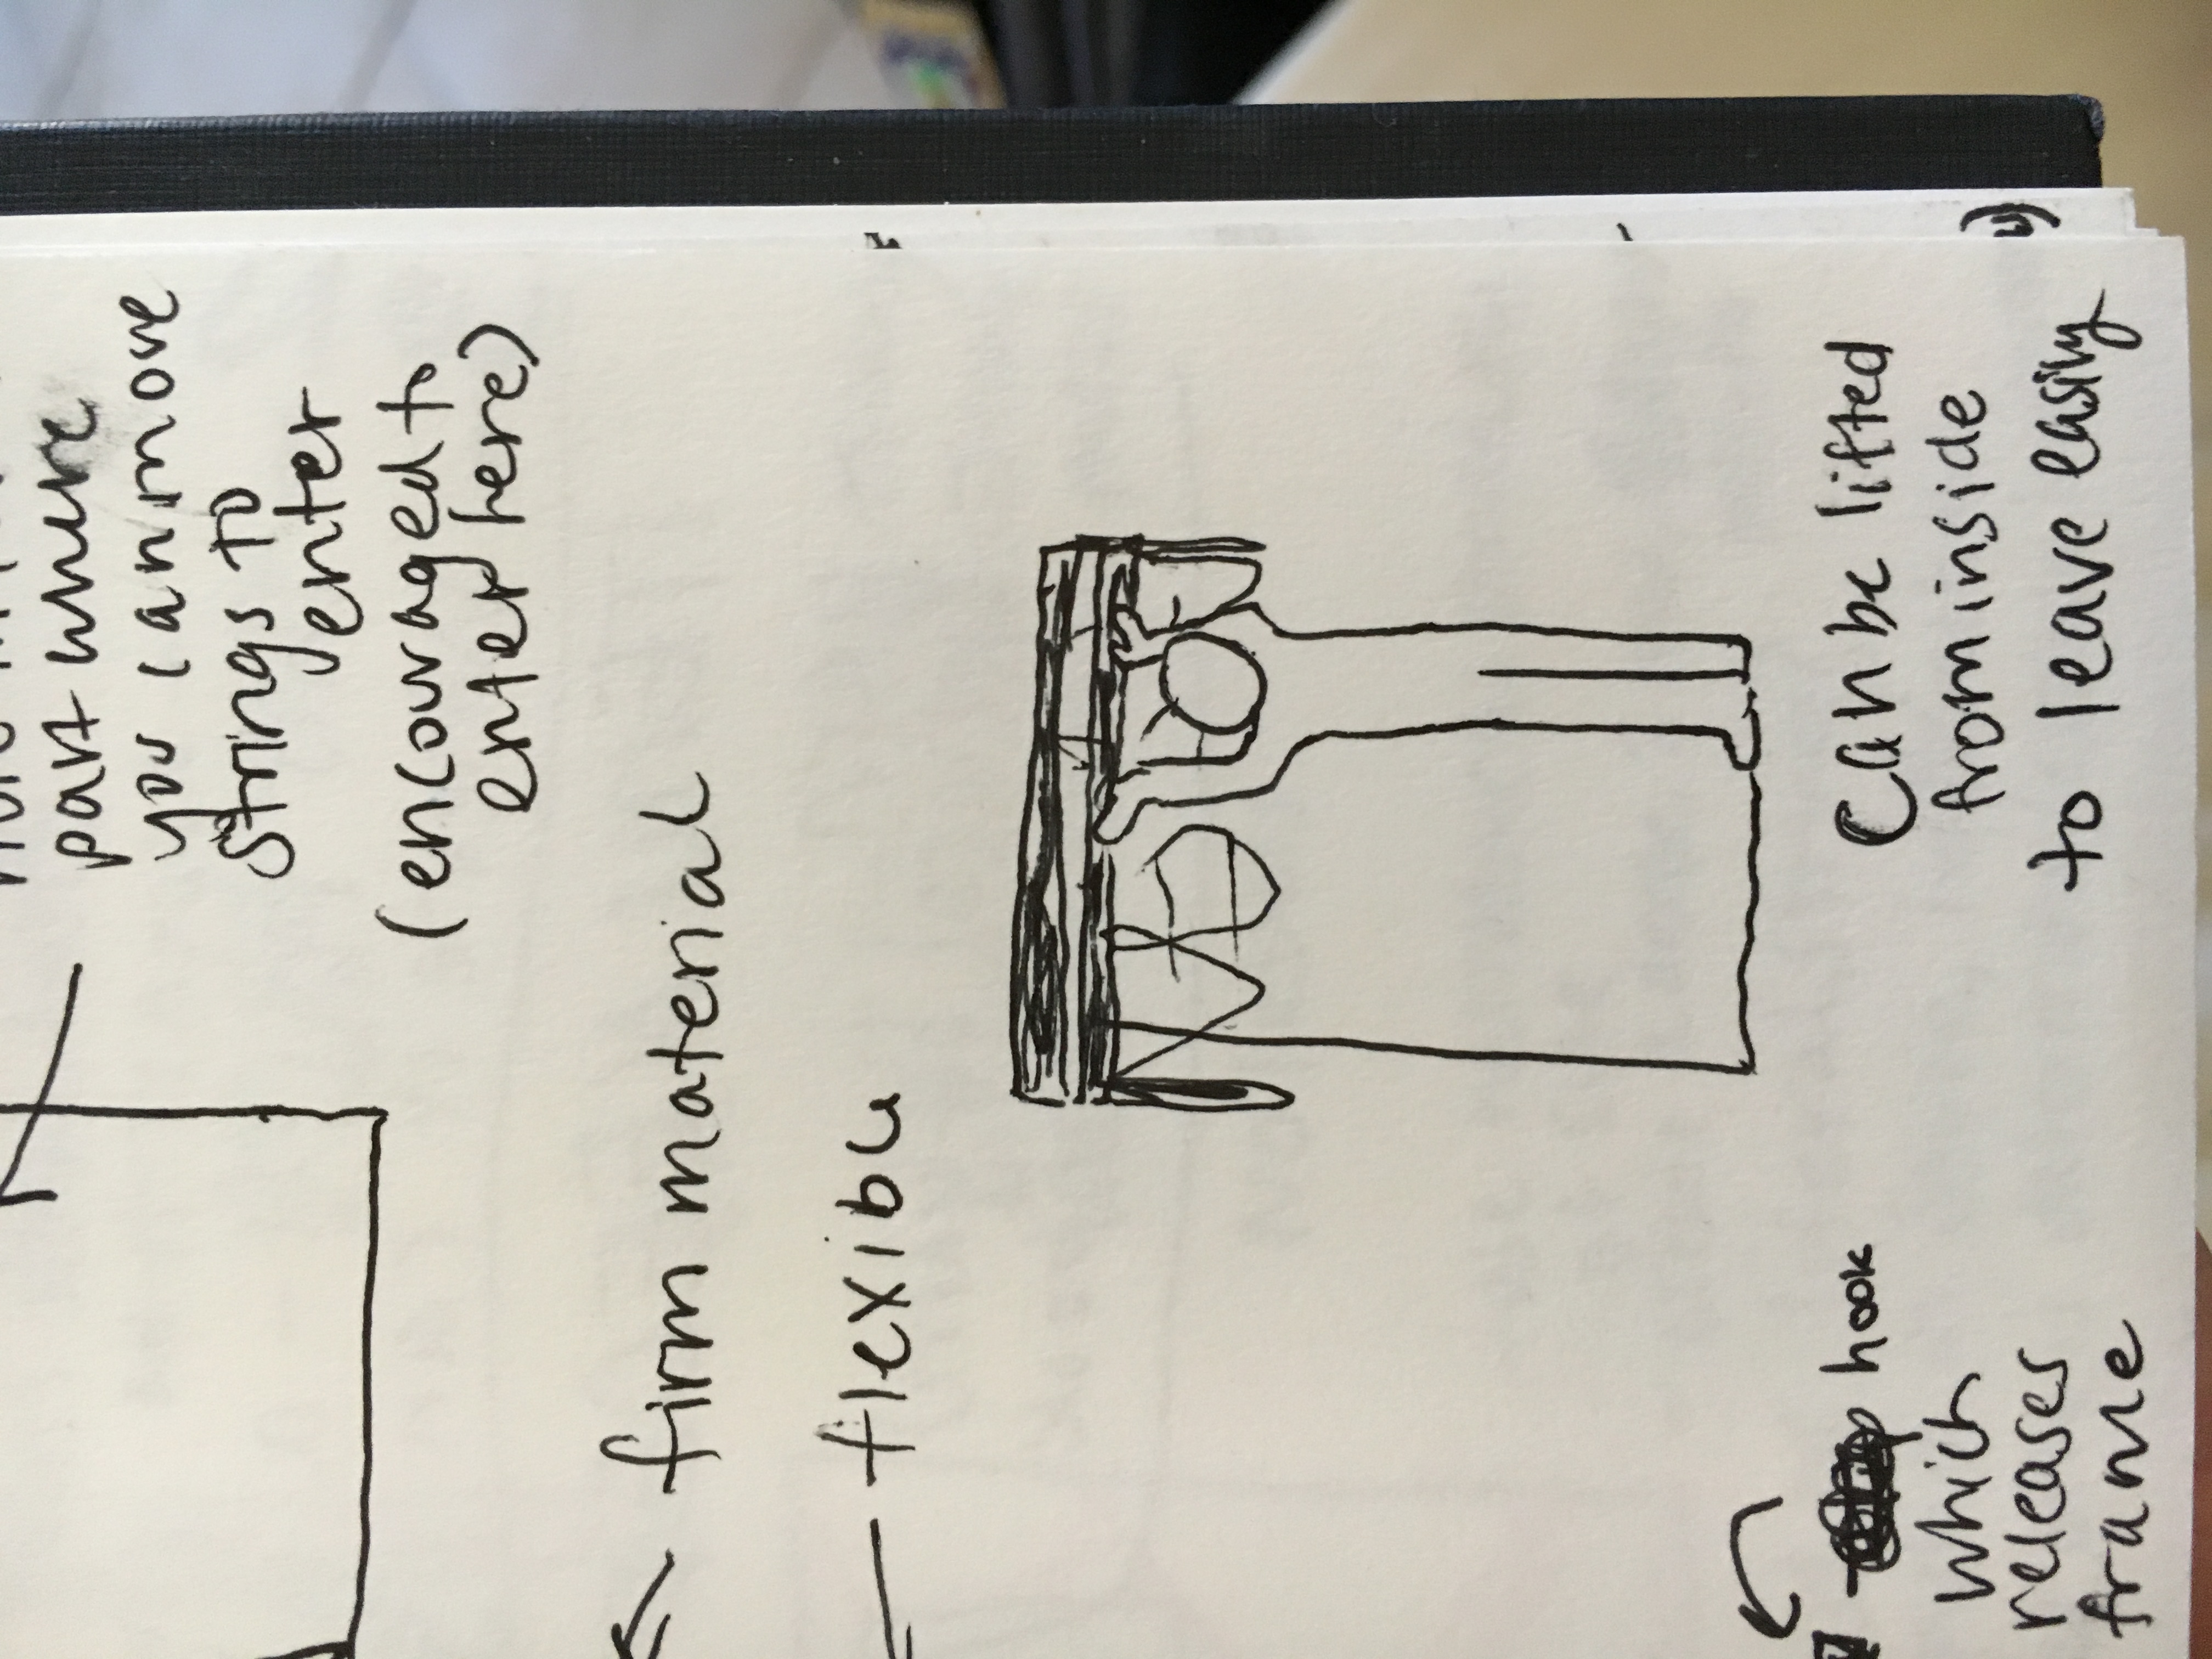 part where
you can move
strings to
enter
(encouraged to
enter here)
firm material
flexible
hook
which
releases
frame
can be lifted
from inside
to leave easily